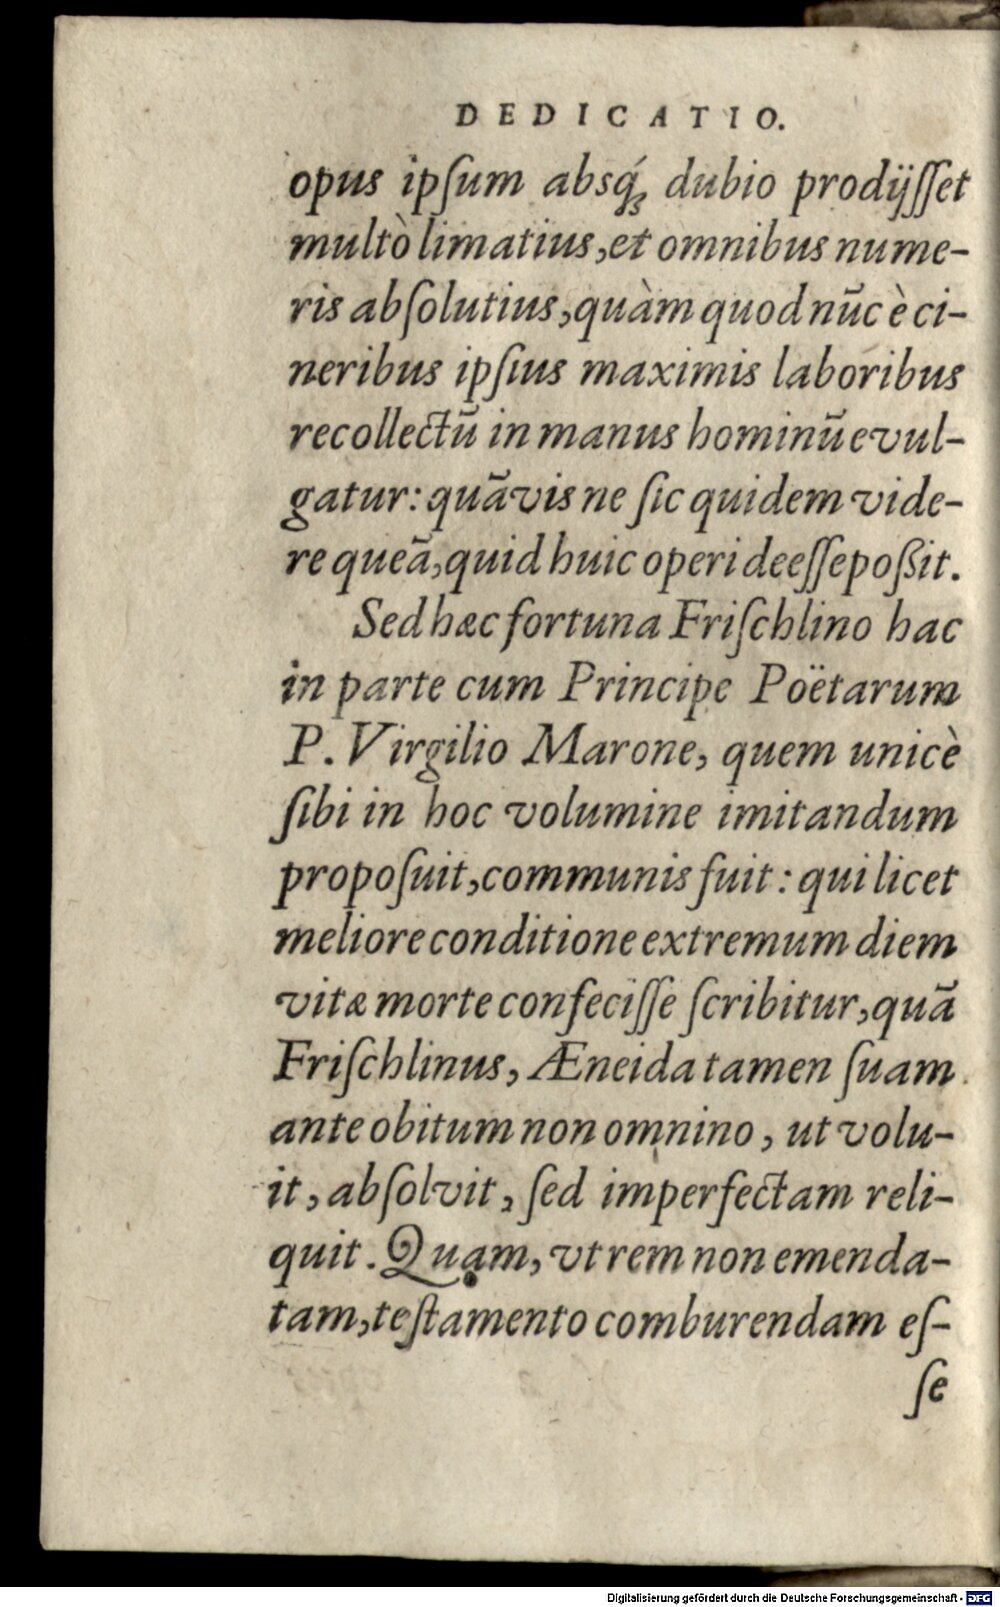 DEDICATIO.
opus ipſum absq́; dubio prodijſſet
multò limatius, et omnibus nume-
ris abſolutius, quàm quod nūc è ci-
neribus ipſius maximis laboribus
recollectū in manus hominū evul-
gatur: quāvis ne ſic quidem vide-
re queā, quid huic operi deeſſe poßit.
Sed hæc fortuna Friſchlino hac
in parte cum Principe Poëtarum
P. Virgilio Marone, quem unicè
ſibi in hoc volumine imitandum
propoſuit, communis fuit: qui licet
meliore conditione extremum diem
vitæ morte confeciſſe ſcribitur, quā
Friſchlinus, Æneida tamen ſuam
ante obitum non omnino, ut volu-
it, abſolvit, ſed imperfectam reli-
quit. Quam, vt rem non emenda-
tam, teſtamento comburendam eſ-
ſe
Digitalisierung gefördert durch die Deutsche Forschungsgemeinschaft - DFG